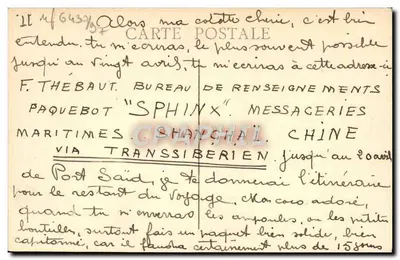 II Alors ma cocotte chérie, c'est bien
CARTE POSTALE
entendu. tu m'écriras, le plus souvent possible
jusqu'au vingt avril, tu m'écriras à cette adresse-ci
F. THÉBAUT. BUREAU DE RENSEIGNEMENTS
PAQUEBOT "SPHINX" MESSAGERIES
MARITIMES SHANGHAÏ. CHINE
VIA TRANSSIBERIEN. jusqu'au 20 avril
de Port Saïd, je te donnerai l'itinéraire
pour le restant du voyage. Mon coco adoré,
quand tu m'enverras les ampoules, ou les petites
bouteilles, surtout fais un paquet bien solide, bien
capitonné, car il faudra certainement plus de 15 jours